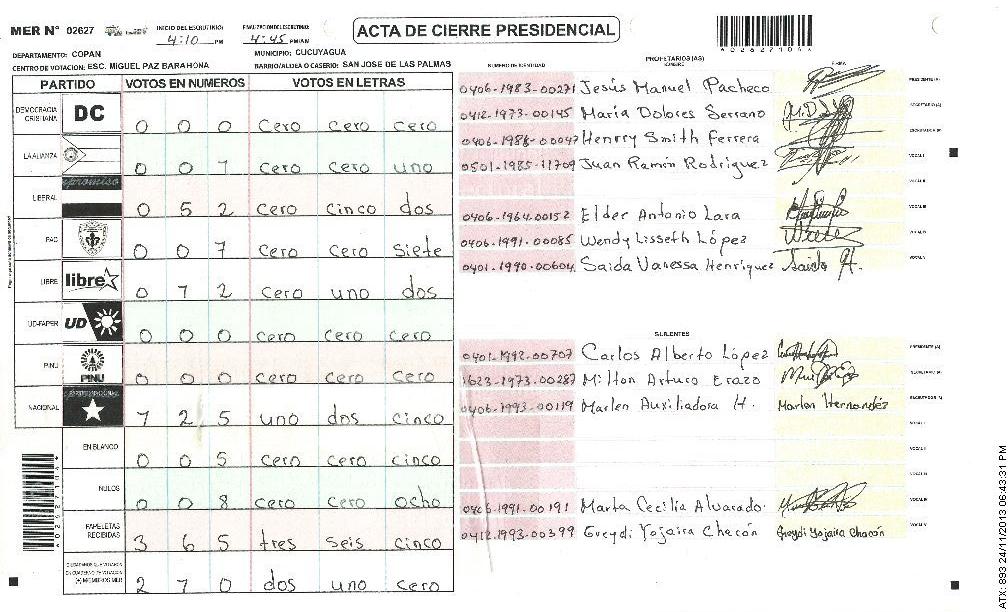 MER Nº 02627
INICIO DEL ESCRUTINIO: 4:10 PM
FINALIZACION DEL ESCRUTINIO: 4:45 PM/AM
ACTA DE CIERRE PRESIDENCIAL
DEPARTAMENTO: COPAN
MUNICIPIO: CUCUYAGUA
CENTRO DE VOTACION: ESC. MIGUEL PAZ BARAHONA
BARRIO/ALDEA O CASERIO: SAN JOSE DE LAS PALMAS
PARTIDO VOTOS EN NUMEROS VOTOS EN LETRAS
DEMOCRACIA CRISTIANA DC 0 0 0 cero cero cero
LA ALIANZA 0 0 1 cero cero uno
LIBERAL 0 5 2 cero cinco dos
PAC 0 0 7 cero cero siete
LIBRE libre 0 1 2 cero uno dos
UD-FAPER UD 0 0 0 cero cero cero
PINU PINU 0 0 0 cero cero cero
NACIONAL 1 2 5 uno dos cinco
EN BLANCO 0 0 5 cero cero cinco
NULOS 0 0 8 cero cero ocho
PAPELETAS RECIBIDAS 3 6 5 tres seis cinco
CIUDADANOS QUE VOTARON EN CUADERNO DE VOTACION (+) MIEMBROS MER 2 1 0 dos uno cero
NUMERO DE IDENTIDAD PROPIETARIOS (AS) NOMBRE FIRMA
0406-1983-00271 Jesús Manuel Pacheco PRESIDENTE (A)
0412-1973-00145 María Dolores Serrano SECRETARIO (A)
0406-1988-00047 Henrry Smith Ferrera ESCRUTADOR (A)
0501-1985-11709 Juan Ramón Rodriguez VOCAL I
VOCAL II
0406-1964-00152 Elder Antonio Lara VOCAL III
0406-1991-00085 Wendy Lisseth López VOCAL IV
0401-1990-00604 Saida Vanessa Henriquez Saida H. VOCAL V
SUPLENTES
0401-1992-00707 Carlos Alberto López PRESIDENTE (A)
1623-1973-00287 Milton Arturo Erazo SECRETARIO (A)
0406-1993-00119 Marlen Auxiliadora H. Marlen Hernandéz ESCRUTADOR (A)
VOCAL I
VOCAL II
0406-1991-00191 Marta Cecilia Alvarado. VOCAL IV
0412-1993-00399 Greydi Yojaira Chacón Greydi Yojaira Chacón VOCAL V
ATX: 893 24/11/2013 06:43:31 PM